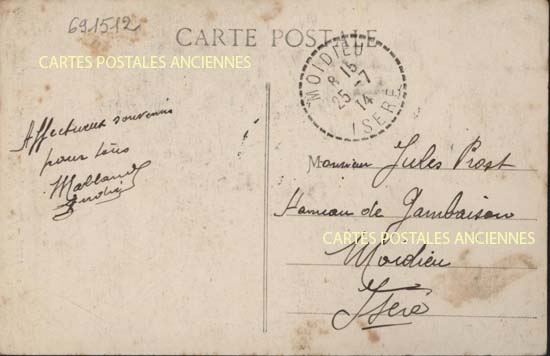 691512
CARTE POSTALE
CARTES POSTALES ANCIENNES
MOIDIEU
8 15
25-7
14
ISERE
Affectueux souvenir
pour tous
Monsieur Jules Prost
Hameau de Gambaison
CARTES POSTALES ANCIENNES
Moidieu
Isère